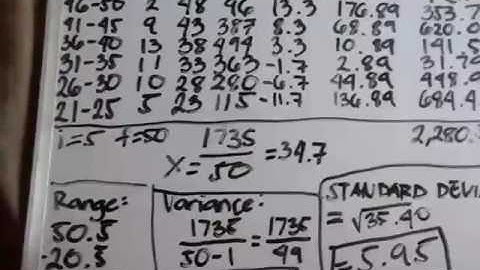 46-50 2 48 96 13.3 176.89 353.7
41-45 9 43 387 8.3 68.89 620.0
36-40 13 38 494 3.3 10.89 141.5
31-35 11 33 363 -1.7 2.89 31.79
26-30 10 28 280 -6.7 44.89 448.9
21-25 5 23 115 -11.7 136.89 684.4
i=5 f=50 X= 1735 / 50 =34.7 2,280.
Range:
50.5
-20.5
Variance:
1735 / 50-1 = 1735 / 49
STANDARD DEVI
= √35.40
= 5.95